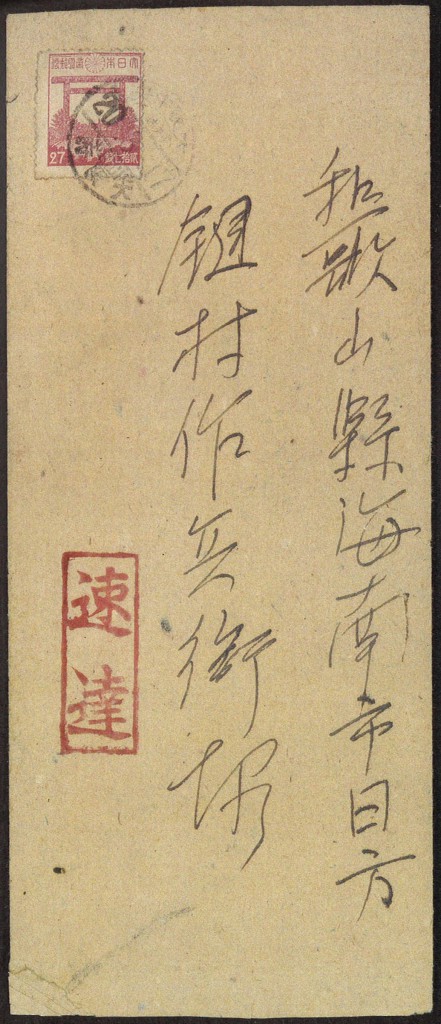 和歌山縣海南市日方
鍵村作兵衛様
大日本帝國郵便
27
貳拾七錢
速達